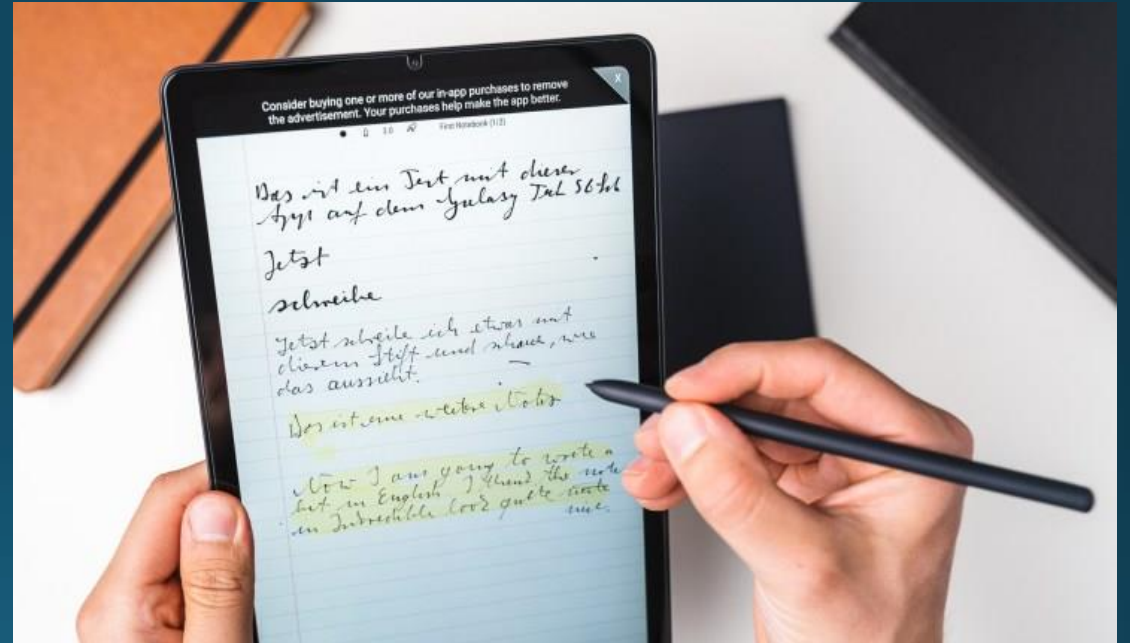 Consider buying one or more of our in-app purchases to remove
the advertisement. Your purchases help make the app better.
X
1.0 First Notebook (1/2)
Das ist ein Test mit dieser
App auf dem Galaxy Tab S6 Lite
Jetzt
schreibe
Jetzt schreibe ich etwas mit
diesem Stift und schaue, wie
das aussieht.
Das ist eine weitere Notiz
Now I am going to write a
bit in English. I think the note
in Inkredible look quite
nice.